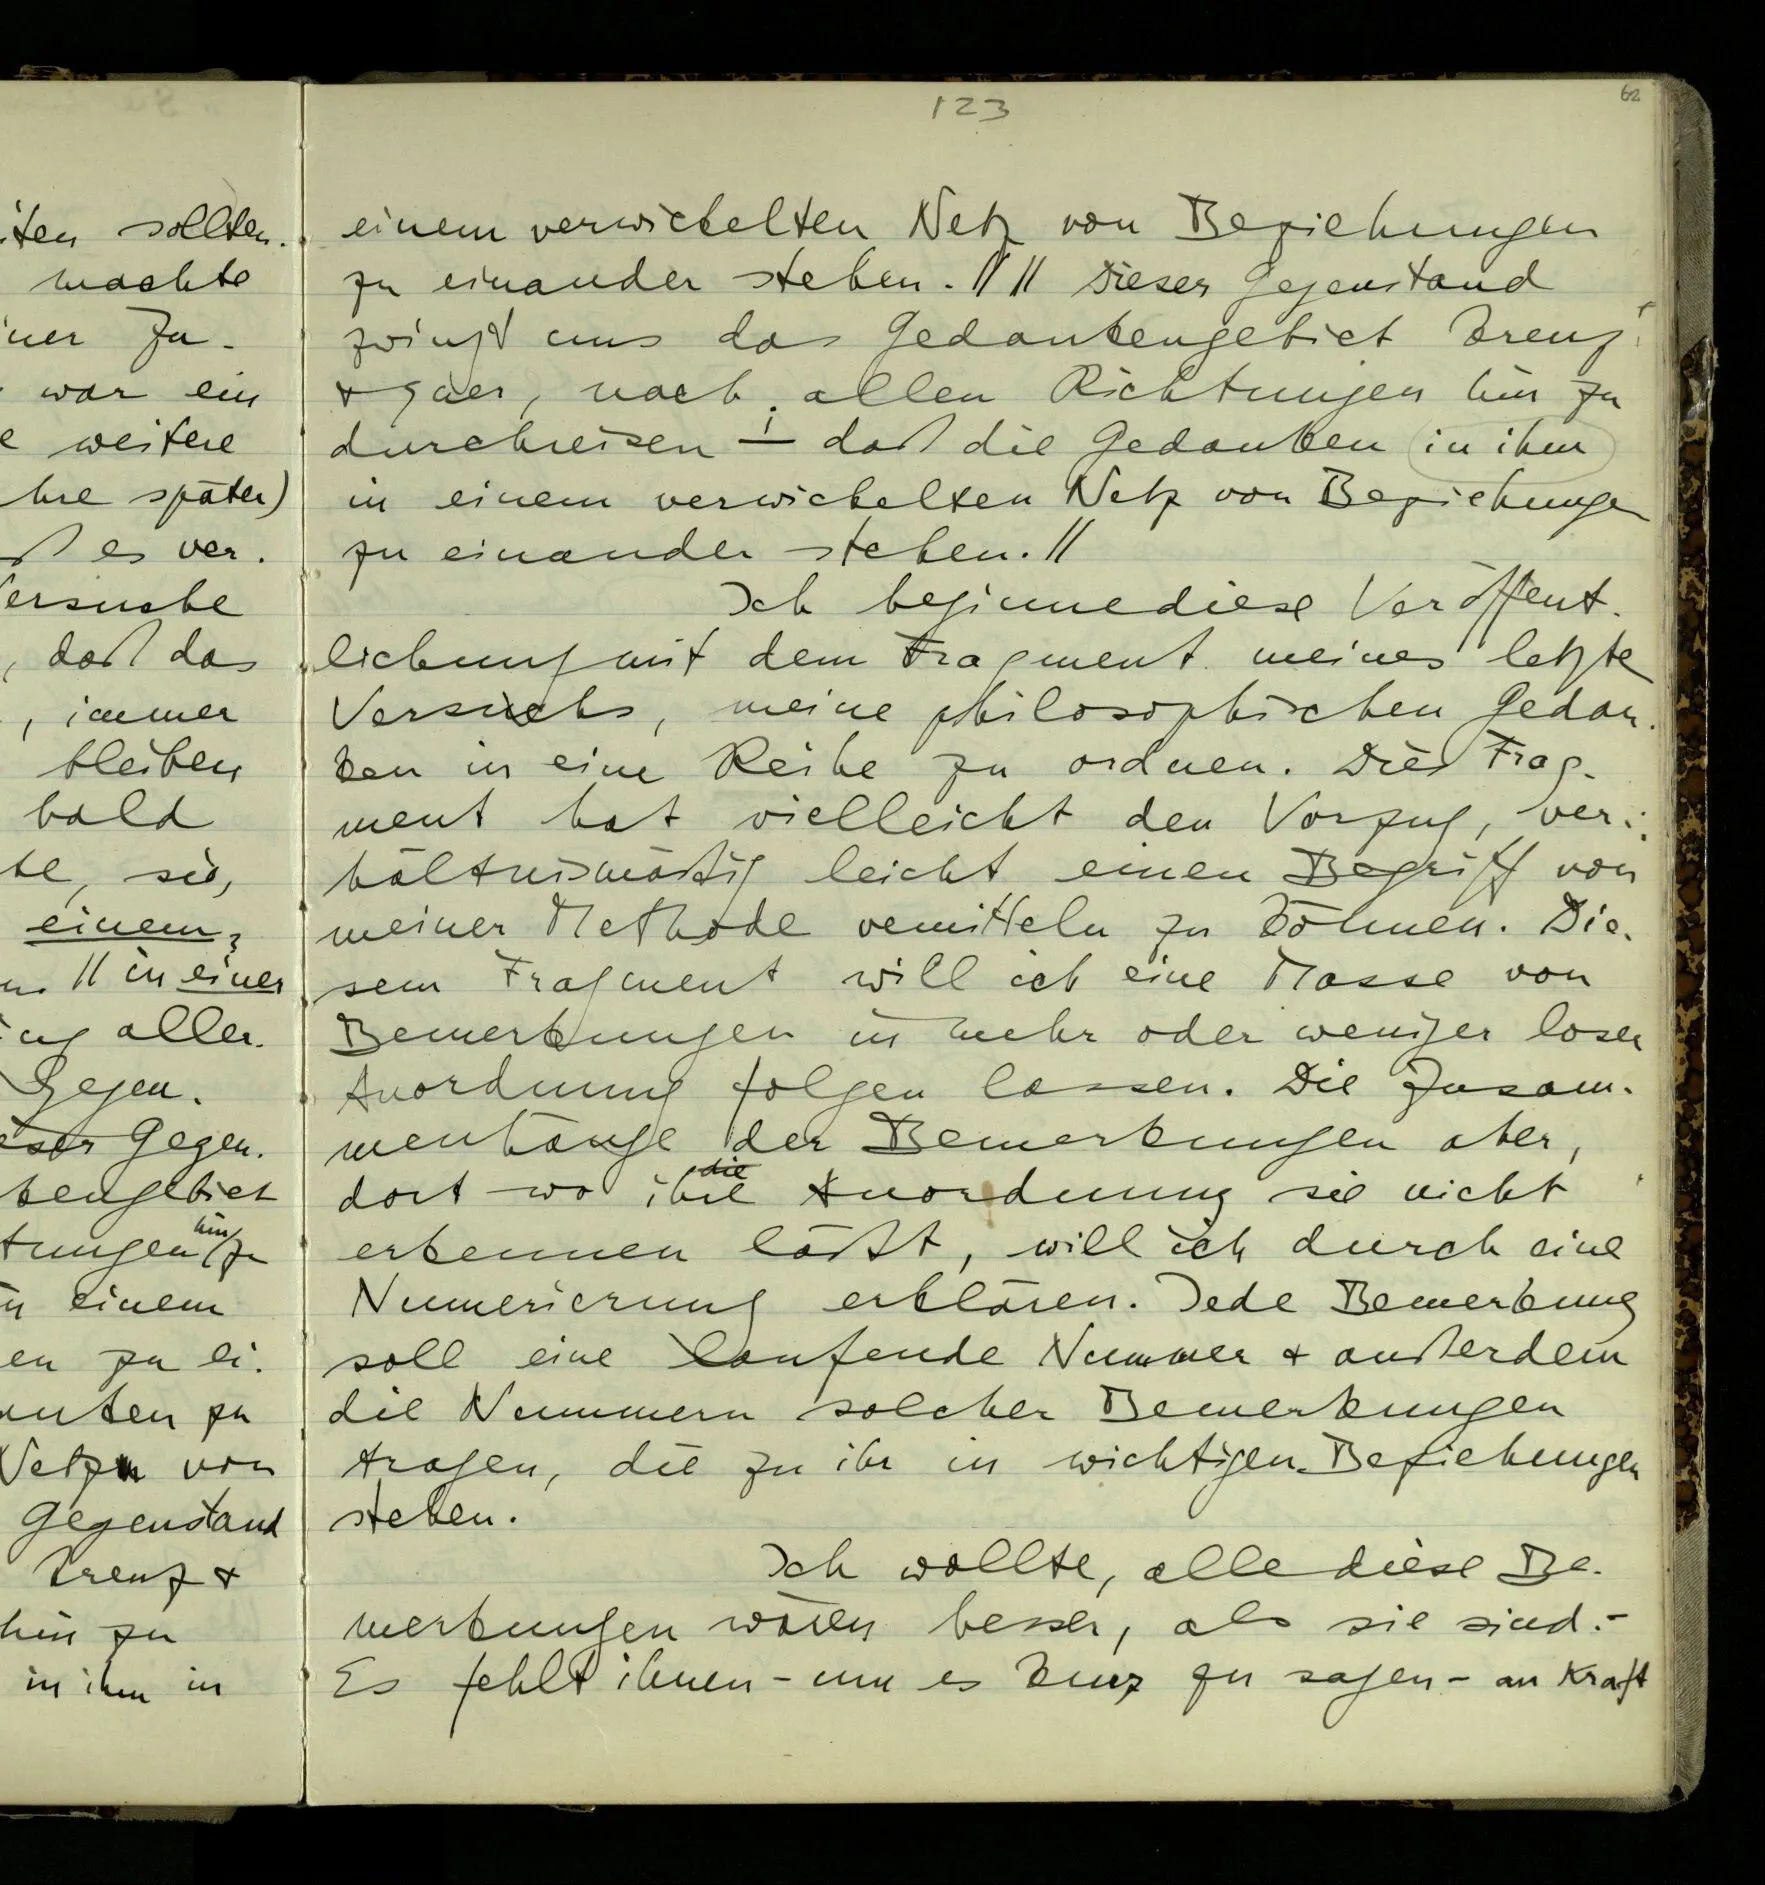 123
62
iten sollten.
machte
iner Zu-
war ein
weitere
hre später)
ß es ver-
Versuche
, daß das
, immer
bleiben
bald
te, sie,
einem
n. || in einer
ung aller-
Gegen-
eser Gegen-
kengebiet
tungen hin zu
in einem
en zu ei-
anken zu
Netz von
Gegenstand
kreuz &
hin zu
in ihm in
einem verwickelten Netz von Beziehungen
zu einander stehen. || || Dieser Gegenstand
zwingt uns das Gedankengebiet kreuz
& quer, nach allen Richtungen hin zu
durchreisen – daß die Gedanken in ihm
in einem verwickelten Netz von Beziehungen
zu einander stehen. ||
Ich beginne diese Veröffent-
lichung mit dem Fragment meines letzten
Versuchs, meine philosophischen Gedan-
ken in eine Reihe zu ordnen. Dies Frag-
ment hat vielleicht den Vorzug, ver-
hältnismäßig leicht einen Begriff von
meiner Methode vemitteln zu können. Die-
sem Fragment will ich eine Masse von
Bemerkungen in mehr oder weniger loser
Anordnung folgen lassen. Die Zusam-
menhänge der Bemerkungen aber,
dort wo ihre die Anordnung sie nicht
erkennen läßt, will ich durch eine
Numerierung erklären. Jede Bemerkung
soll eine laufende Nummer & außerdem
die Nummern solcher Bemerkungen
tragen, die zu ihr in wichtigen Beziehungen
stehen.
Ich wollte, alle diese Be-
merkungen wären besser, als sie sind. –
Es fehlt ihnen – um es kurz zu sagen – an Kraft